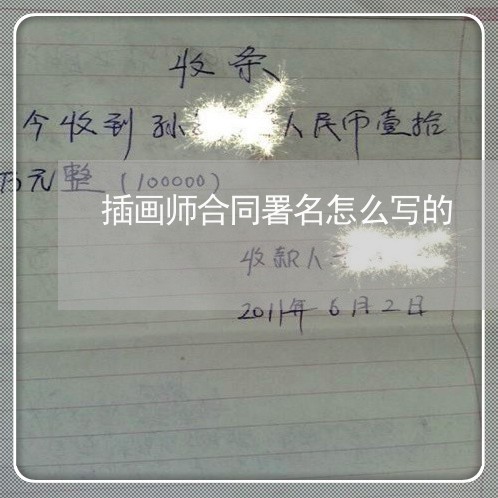 收条
今收到孙 人民币壹拾
万元整（100000）
插画师合同署名怎么写的
收款人
2011年6月2日